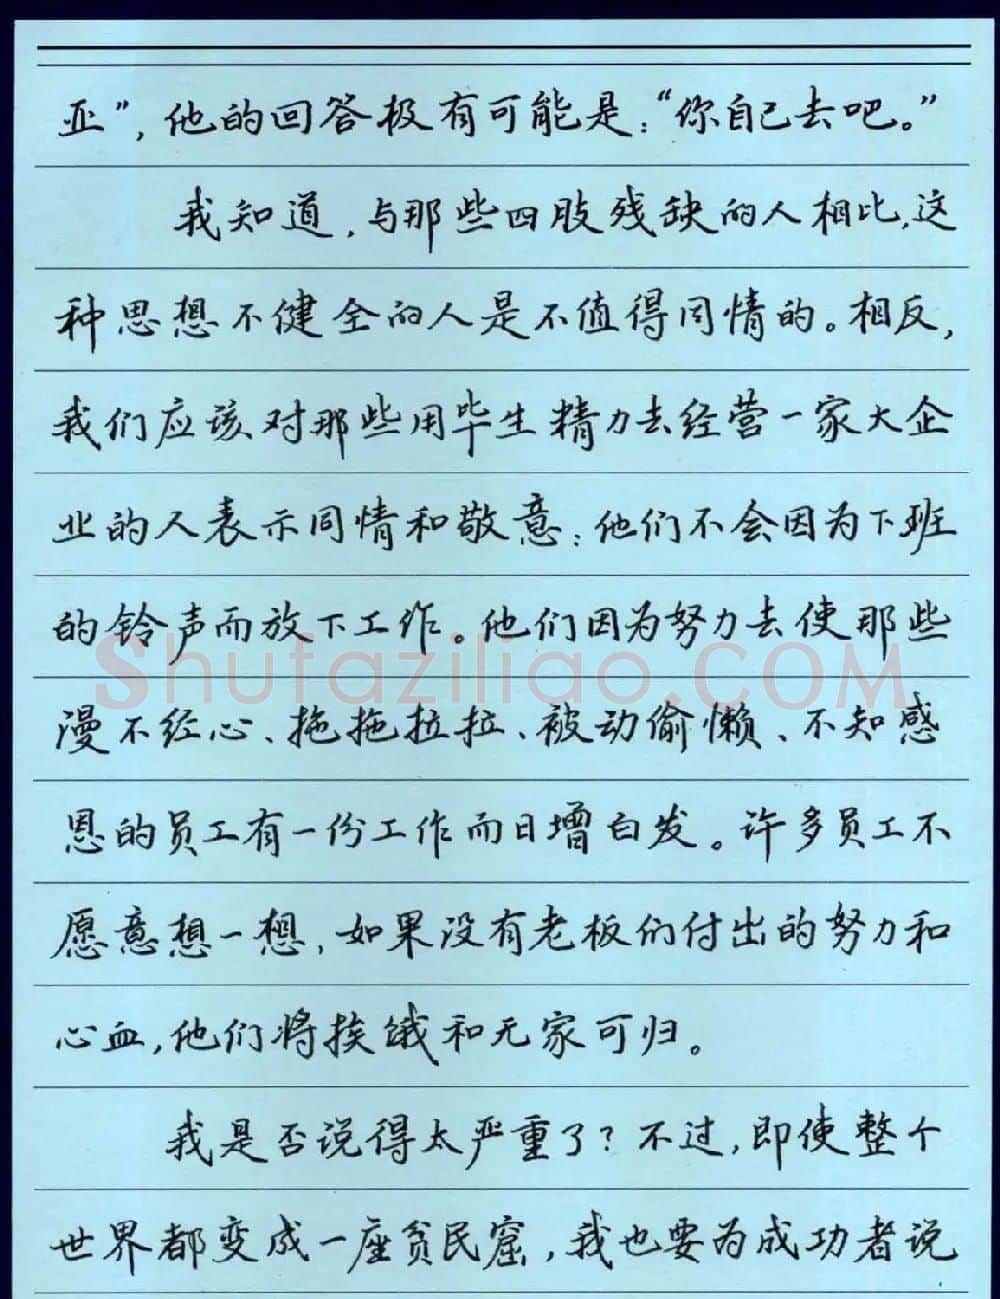 亚”，他的回答极有可能是：“你自己去吧。”
我知道，与那些四肢残缺的人相比，这
种思想不健全的人是不值得同情的。相反，
我们应该对那些用毕生精力去经营一家大企
业的人表示同情和敬意：他们不会因为下班
的铃声而放下工作。他们因为努力去使那些
Shufaziliao.COM
漫不经心、拖拖拉拉、被动偷懒、不知感
恩的员工有一份工作而日增白发。许多员工不
愿意想一想，如果没有老板们付出的努力和
心血，他们将挨饿和无家可归。
我是否说得太严重了？不过，即使整个
世界都变成一座贫民窟，我也要为成功者说